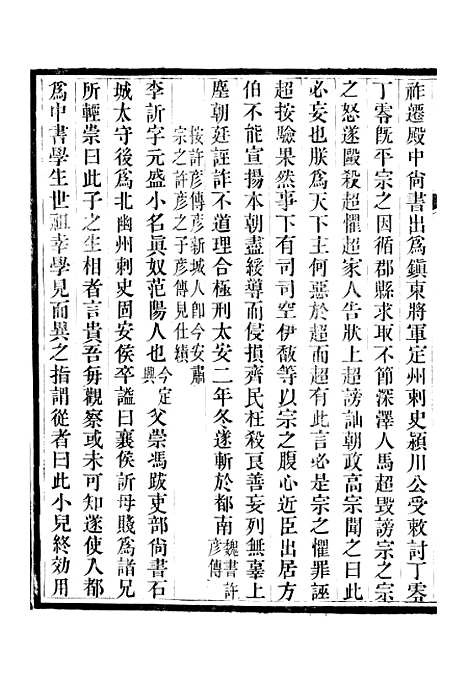 祚遷殿中尚書出爲鎭東將軍定州刺史潁川公受敕討丁零
丁零旣平宗之因循郡縣求取不節深澤人馬超毀謗宗之宗
之怒遂毆殺超懼超家人告狀上超謗訕朝政高宗聞之曰此
必妄也朕爲天下主何惡於超而超有此言必是宗之懼罪誣
超按驗果然事下有司司空伊馛等以宗之腹心近臣出居方
伯不能宣揚本朝盡綏導而侵損齊民枉殺良善妄列無辜上
塵朝廷誣詐不道理合極刑太安二年冬遂斬於都南魏書許
彥傳
按許彥傳彥新城人卽今安肅
宗之許彥之子彥傳見仕績
李訢字元盛小名眞奴范陽人也今定
興父崇馮跋吏部尚書石
城太守後爲北幽州刺史固安侯卒謚曰襄侯訢母賤爲諸兄
所輕崇曰此子之生相者言貴吾每觀察或未可知遂使入都
爲中書學生世祖幸學見而異之指謂從者曰此小兒終効用